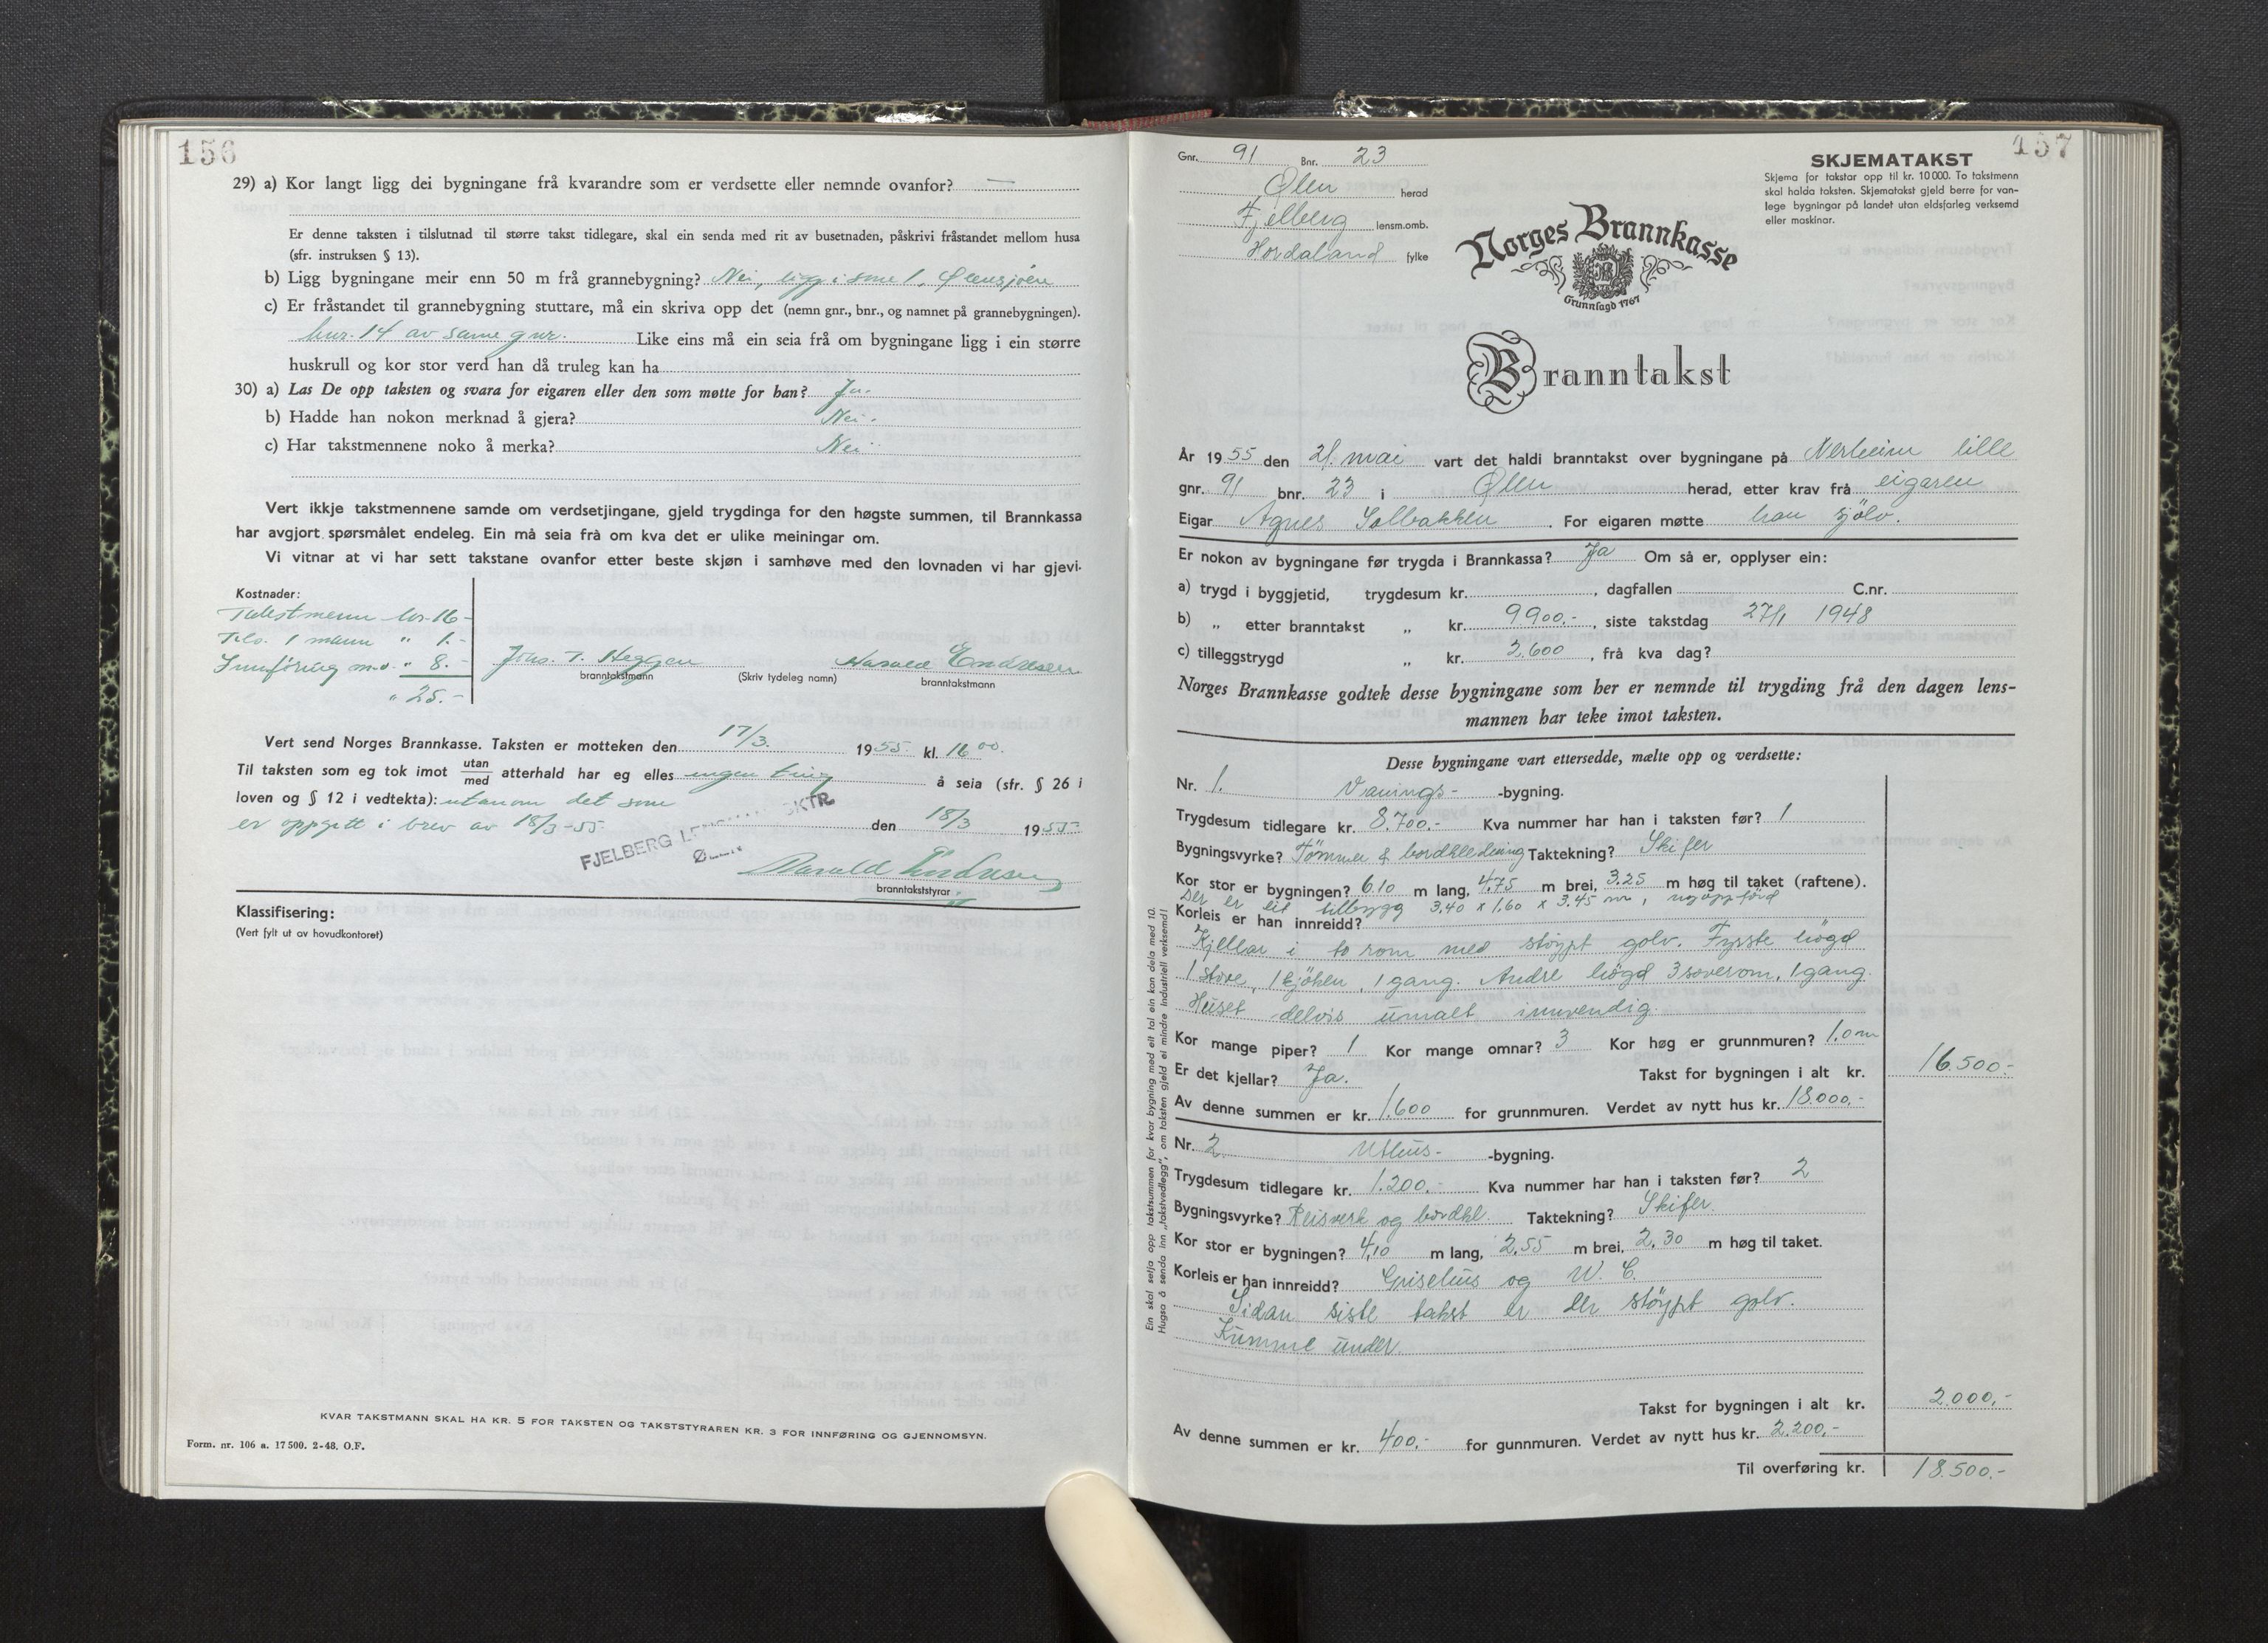 156
29) a) Kor langt ligg dei bygningane frå kvarandre som er verdsette eller nemnde ovanfor? —
Er denne taksten i tilslutnad til større takst tidlegare, skal ein senda med rit av busetnaden, påskrivi fråstandet mellom husa
(sfr. instruksen § 13).
b) Ligg bygningane meir enn 50 m frå grannebygning? Nei, ligg i Ølensjøen
c) Er fråstandet til grannebygning stuttare, må ein skriva opp det (nemn gnr., bnr., og namnet på grannebygningen).
bnr. 14 av same gnr. Like eins må ein seia frå om bygningane ligg i ein større
huskrull og kor stor verd han då truleg kan ha
30) a) Las De opp taksten og svara for eigaren eller den som møtte for han? Ja.
b) Hadde han nokon merknad å gjera? Nei.
c) Har takstmennene noko å merka? Nei
Vert ikkje takstmennene samde om verdsetjingane, gjeld trygdinga for den høgste summen, til Brannkassa
har avgjort spørsmålet endeleg. Ein må seia frå om kva det er ulike meiningar om.
Vi vitnar at vi har sett takstane ovanfor etter beste skjøn i samhøve med den lovnaden vi har gjevi.
Kostnader:
Takstmenn kr. 16.-
Tils. 1 mann " 1.-
Innföring m.v. " 8.-
" 25.-
Jons. T. Heggen Harald Endresen
branntakstmann (Skriv tydeleg namn) branntakstmann
Vert send Norges Brannkasse. Taksten er motteken den 17/3. 1955 kl. 16 00.
Til taksten som eg tok imot utan/med atterhald har eg elles ingen ting å seia (sfr. § 26 i
loven og § 12 i vedtekta): utanom det som
er oppgitt i brev av 18/3-55. den 18/3 1955
FJELBERG LENSMANNSKTR
ØLEN
Harald Endresen
branntakststyrar
Klassifisering:
(Vert fylt ut av hovudkontoret)
KVAR TAKSTMANN SKAL HA KR. 5 FOR TAKSTEN OG TAKSTSTYRAREN KR. 3 FOR INNFØRING OG GJENNOMSYN.
Form. nr. 106 a. 17 500. 2-48. O.F.
157
Gnr. 91 Bnr. 23
Ølen herad
Fjelberg lensm.omb.
Hordaland fylke
SKJEMATAKST
Skjema for takstar opp til kr. 10 000. To takstmenn
skal halda taksten. Skjematakst gjeld berre for van-
lege bygningar på landet utan eldsfarleg verksemd
eller maskinar.
Norges Brannkasse
Grunnlagd 1767
Branntakst
År 1955 den 21. mai vart det haldi branntakst over bygningane på Nerheim lille
gnr. 91 bnr. 23 i Ølen herad, etter krav frå eigaren
Eigar Agnes Solbakken. For eigaren møtte han sjölv.
Er nokon av bygningane før trygda i Brannkassa? Ja Om så er, opplyser ein:
a) trygd i byggjetid, trygdesum kr. , dagfallen C.nr.
b) „ etter branntakst „ kr. 9900.-, siste takstdag 27/1 1948
c) tilleggstrygd „ kr. 2.600, frå kva dag?
Norges Brannkasse godtek desse bygningane som her er nemnde til trygding frå den dagen lens-
mannen har teke imot taksten.
Desse bygningane vart ettersedde, mælte opp og verdsette:
Nr. 1. Vaanings- -bygning.
Trygdesum tidlegare kr. 8.700.- Kva nummer har han i taksten før? 1
Bygningsvyrke? Tömmer & bordkledning Taktekning? Skifer
Kor stor er bygningen? 6.10 m lang, 4.75 m brei, 3.25 m høg til taket (raftene).
Der er eit tilbygg 3.40 x 1.60 x 3.45 m, nyoppförd
Korleis er han innreidd?
Kjellar i to rom med stöypt golv. Fyrste högd
1 stove, 1 kjöken, 1 gang. Andre högd 3 soverom, 1 gang.
Huset delvis umalt innvendig.
Kor mange piper? 1 Kor mange omnar? 3 Kor høg er grunnmuren? 1.0 m
Er det kjellar? Ja. Takst for bygningen i alt kr. 16.500.-
Av denne summen er kr. 1.600 for grunnmuren. Verdet av nytt hus kr. 18.000,-
Nr. 2 Uthus- -bygning.
Trygdesum tidlegare kr. 1.200.- Kva nummer har han i taksten før? 2
Bygningsvyrke? Reisverk og bordkl. Taktekning? Skifer.
Kor stor er bygningen? 4,10 m lang, 2.55 m brei, 2.30 m høg til taket.
Korleis er han innreidd? Grisehus og W. C.
Sidan siste takst er der stöypt golv.
Kumme under.
Takst for bygningen i alt kr. 2.000,-
Av denne summen er kr. 400,- for gunnmuren. Verdet av nytt hus kr. 2.200,-
Til overføring kr. 18.500.-
Ein skal setja opp takstsummen for kvar bygning med eit tal ein kan dela med 10.
Hugsa å senda inn „takstvedlegg", om taksten gjeld ei mindre industriell verksemd!